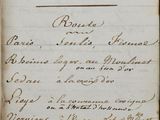 Route
Paris, Senlis, Fismes
Rheims loger au Moulinet
ou au Lion d'or
Sedan à la croix d'or
Liege à la couronne
ou à l'hotel